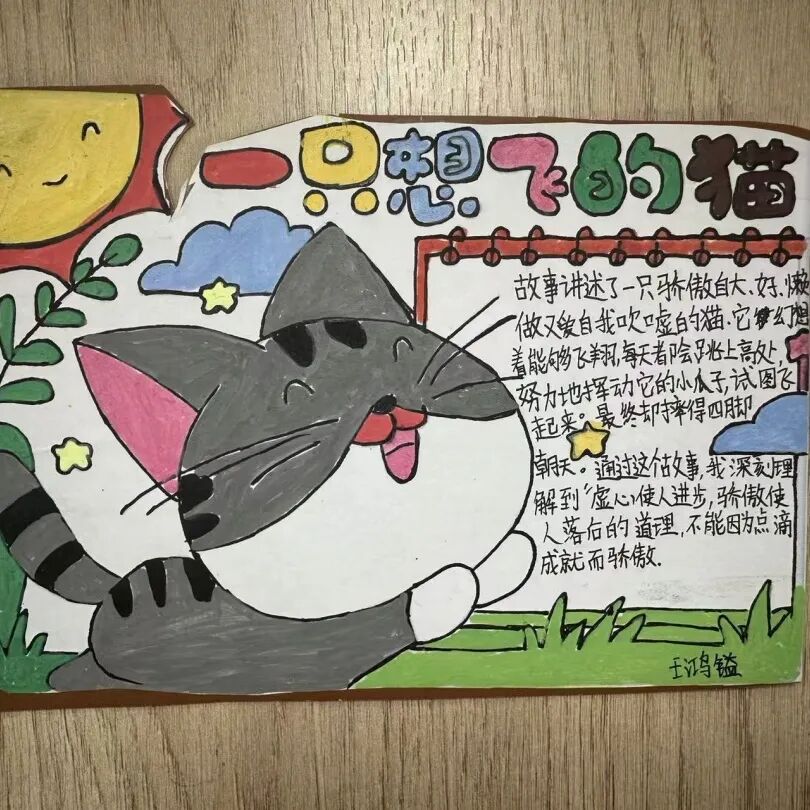 一只想飞的猫
故事讲述了一只骄傲自大、好、懒
做又爱自我吹嘘的猫.它梦幻想
着能够飞翔,每天都会跳上高处,
努力地挥动它的小爪子,试图飞
起来。最终却摔得四脚
朝天。通过这个故事,我深刻理
解到“虚心使人进步,骄傲使
人落后的道理,不能因为点滴
成就而骄傲.
王鸿镒